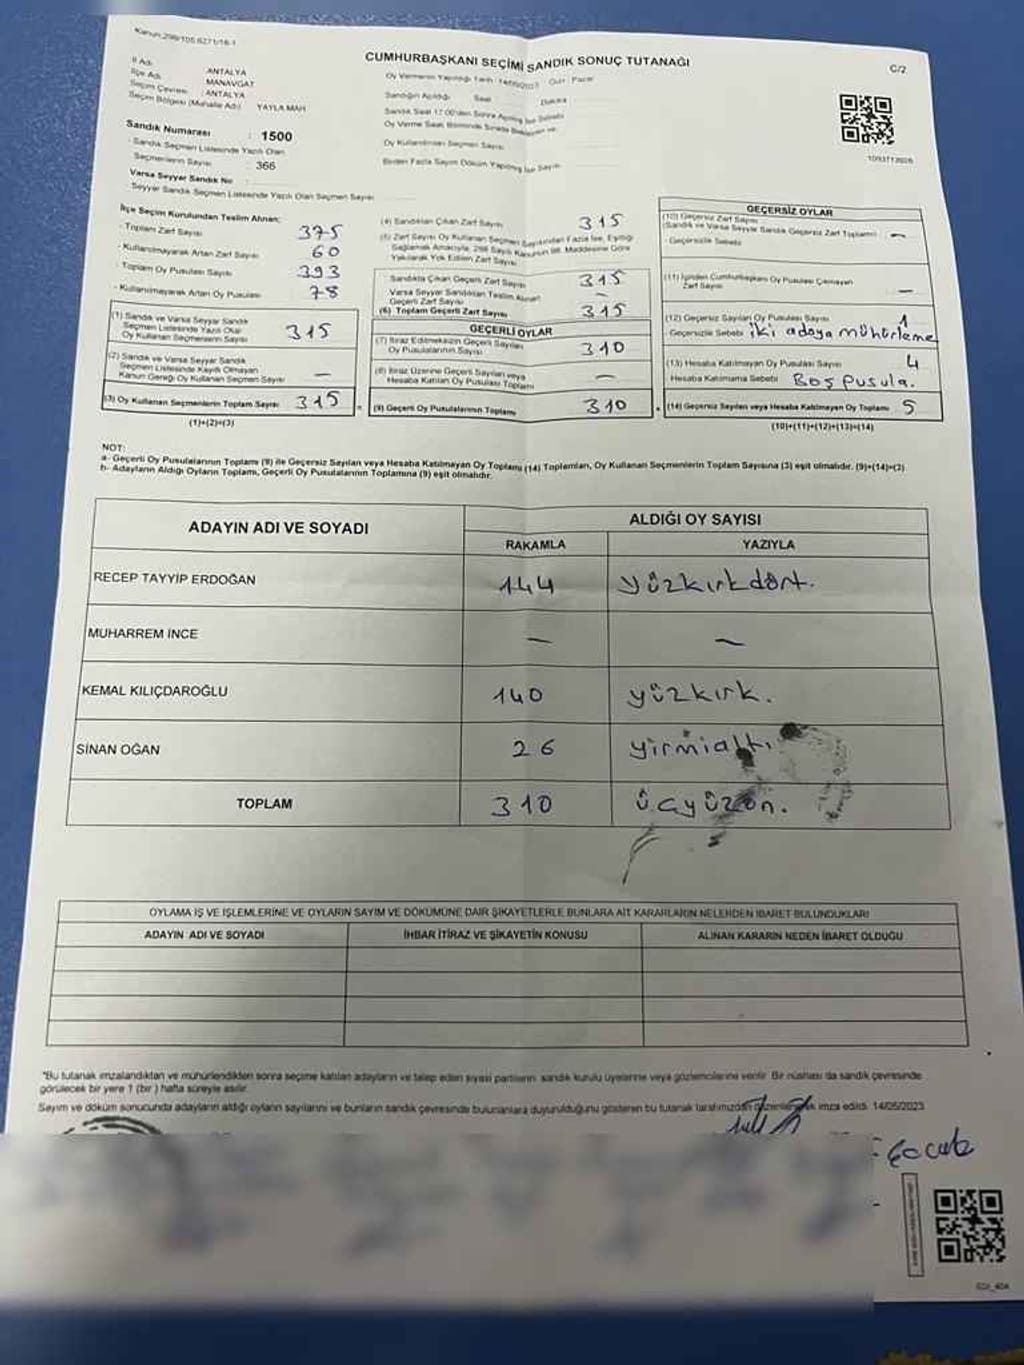 Kanun:298/105,6271/16-1
CUMHURBAŞKANI SEÇİMİ SANDIK SONUÇ TUTANAĞI
C/2
İl Adı : ANTALYA
İlçe Adı : MANAVGAT
Seçim Çevresi : ANTALYA
Seçim Bölgesi (Mahalle Adı) YAYLA MAH
Sandık Numarası : 1500
- Sandık Seçmen Listesinde Yazılı Olan
Seçmenlerin Sayısı 366
Varsa Seyyar Sandık No :
- Seyyar Sandık Seçmen Listesinde Yazılı Olan Seçmen Sayısı
Oy Vermenin Yapıldığı Tarih : 14/05/2023 Gün : Pazar
Sandığın Açıldığı Saat Dakika
Sandık Saat 17.00'den Sonra Açılmış İse Sebebi
Oy Kullandırılan Seçmen Sayısı
Birden Fazla Sayım Döküm Yapılmış İse Sayısı
İlçe Seçim Kurulundan Teslim Alınan:
- Toplam Zarf Sayısı 375
- Kullanılmayarak Artan Zarf Sayısı 60
- Toplam Oy Pusulası Sayısı 393
- Kullanılmayarak Artan Oy Pusulası 78
(1) Sandık ve Varsa Seyyar Sandık
Seçmen Listesinde Yazılı Olan
Oy Kullanan Seçmenlerin Sayısı 315
(2) Sandık ve Varsa Seyyar Sandık
Seçmen Listesinde Kayıtlı Olmayan
Kanun Gereği Oy Kullanan Seçmen Sayısı —
(3) Oy Kullanan Seçmenlerin Toplam Sayısı 315
(1)+(2)=(3)
(4) Sandıktan Çıkan Zarf Sayısı 315
(5) Zarf Sayısı Oy Kullanan Seçmen Sayısından Fazla İse, Eşitliği
Sağlamak Amacıyla, 298 Sayılı Kanunun 98. Maddesine Göre
Yakılarak Yok Edilen Zarf Sayısı
- Sandıkta Çıkan Geçerli Zarf Sayısı 315
Varsa Seyyar Sandıktan Teslim Alınan
Geçerli Zarf Sayısı —
(6) Toplam Geçerli Zarf Sayısı 315
GEÇERLİ OYLAR
(7) İtiraz Edilmeksizin Geçerli Sayılan
Oy Pusulalarının Sayısı 310
(8) İtiraz Üzerine Geçerli Sayılan veya
Hesaba Katılan Oy Pusulası Toplamı —
(9) Geçerli Oy Pusulalarının Toplamı 310
GEÇERSİZ OYLAR
(10) Geçersiz Zarf Sayısı
(Sandık ve Varsa Seyyar Sandık Geçersiz Zarf Toplamı) —
- Geçersizlik Sebebi
(11) İçinden Cumhurbaşkanı Oy Pusulası Çıkmayan
Zarf Sayısı —
(12) Geçersiz Sayılan Oy Pusulası Sayısı 1
- Geçersizlik Sebebi iki adaya mühürleme
(13) Hesaba Katılmayan Oy Pusulası Sayısı 4
Hesaba Katılmama Sebebi Boş pusula.
(14) Geçersiz Sayılan veya Hesaba Katılmayan Oy Toplamı 5
(10)+(11)+(12)+(13)=(14)
NOT:
a- Geçerli Oy Pusulalarının Toplamı (9) ile Geçersiz Sayılan veya Hesaba Katılmayan Oy Toplamı (14) Toplamları, Oy Kullanan Seçmenlerin Toplam Sayısına (3) eşit olmalıdır. (9)+(14)=(3)
b- Adayların Aldığı Oyların Toplamı, Geçerli Oy Pusulalarının Toplamına (9) eşit olmalıdır.
ADAYIN ADI VE SOYADI
ALDIĞI OY SAYISI
RAKAMLA YAZIYLA
RECEP TAYYİP ERDOĞAN 144 yüzkırkdört.
MUHARREM İNCE — —
KEMAL KILIÇDAROĞLU 140 yüzkırk.
SİNAN OĞAN 26 yirmialtı
TOPLAM 310 üçyüzon.
OYLAMA İŞ VE İŞLEMLERİNE VE OYLARIN SAYIM VE DÖKÜMÜNE DAİR ŞİKAYETLERLE BUNLARA AİT KARARLARIN NELERDEN İBARET BULUNDUKLARI
ADAYIN ADI VE SOYADI İHBAR İTİRAZ VE ŞİKAYETİN KONUSU ALINAN KARARIN NEDEN İBARET OLDUĞU
*Bu tutanak imzalandıktan ve mühürlendikten sonra seçime katılan adayların ve talep eden siyasi partilerin sandık kurulu üyelerine veya gözlemcilerine verilir. Bir nüshası da sandık çevresinde
görülecek bir yere 1 (bir ) hafta süreyle asılır.
Sayım ve döküm sonucunda adayların aldığı oyların sayılarını ve bunların sandık çevresinde bulunanlara duyurulduğunu gösteren bu tutanak tarafımızdan düzenlenerek imza edildi. 14/05/2023